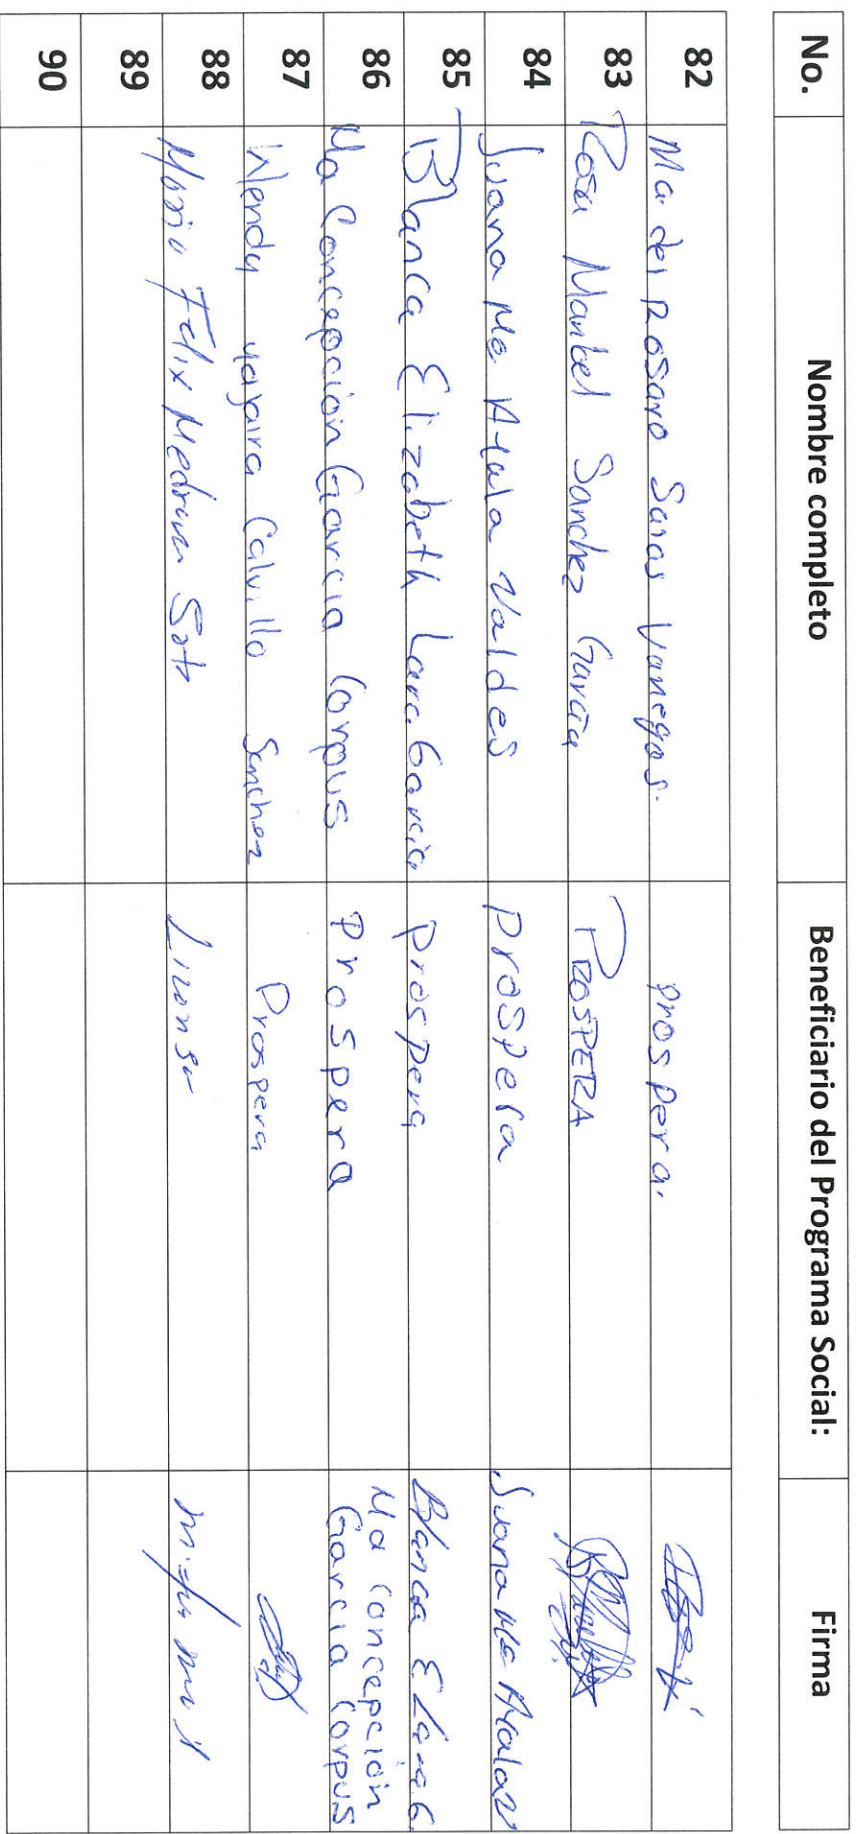 No. Nombre completo Beneficiario del Programa Social: Firma
82 Ma del Rosaro Saras Vanegas. prospera.
83 Rosa Maribel Sanchez García PROSPERA
84 Juana Ma Ayala Valdes Prospera Juana Ma Ayala V
85 Blanca Elizabeth Lara Garcia prospera Blanca E Lara G.
86 Ma Concepcion Garcia Corpus Prospera Ma Concepcion
Garcia Corpus
87 Wendy yajaira Calvillo Sanchez Prospera
88 Mario Felix Medrano Soto
89
90